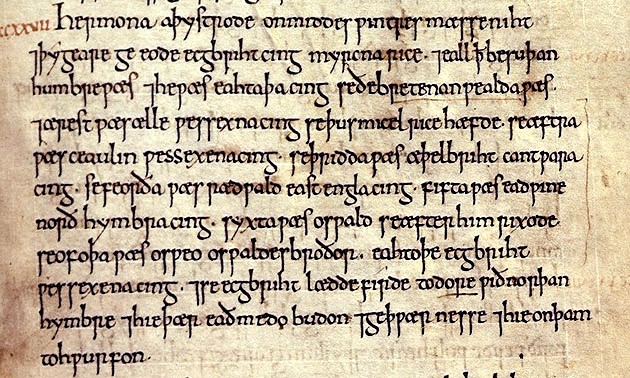 ccxxvii Her mona aþystrode onmiddes ƿintres mæsseniht
⁊þygeare ge eode ecgbriht cing myrcna rice. ⁊eall ꝥ besuþan
humbreƿæs ⁊heƿæs eahtaþa cing seðe bretenanƿealdaƿæs.
⁊ærest ƿæsælle ƿessexna cing seþus micel rice hæfde. seæftra
ƿæs ceaulin ƿessexena cing. seþriddaƿæs æþelbriht cantƿara
cing. sefeorða ƿæs rædƿald east engla cing. fiftaƿæs eadƿine
norðhymbra cing. syxtaƿæs osƿald seæfterhim rixode.
seofoþa ƿæs osƿeo osƿaldes broðor. eahtoþe ecgbriht
ƿessexena cing. ⁊se ecgbriht lædde firde todore ƿiðnorþan
hymbre ⁊hieþær eaðmedo budon ⁊geþƿær nesse ⁊hie onþam
tohƿurfon.